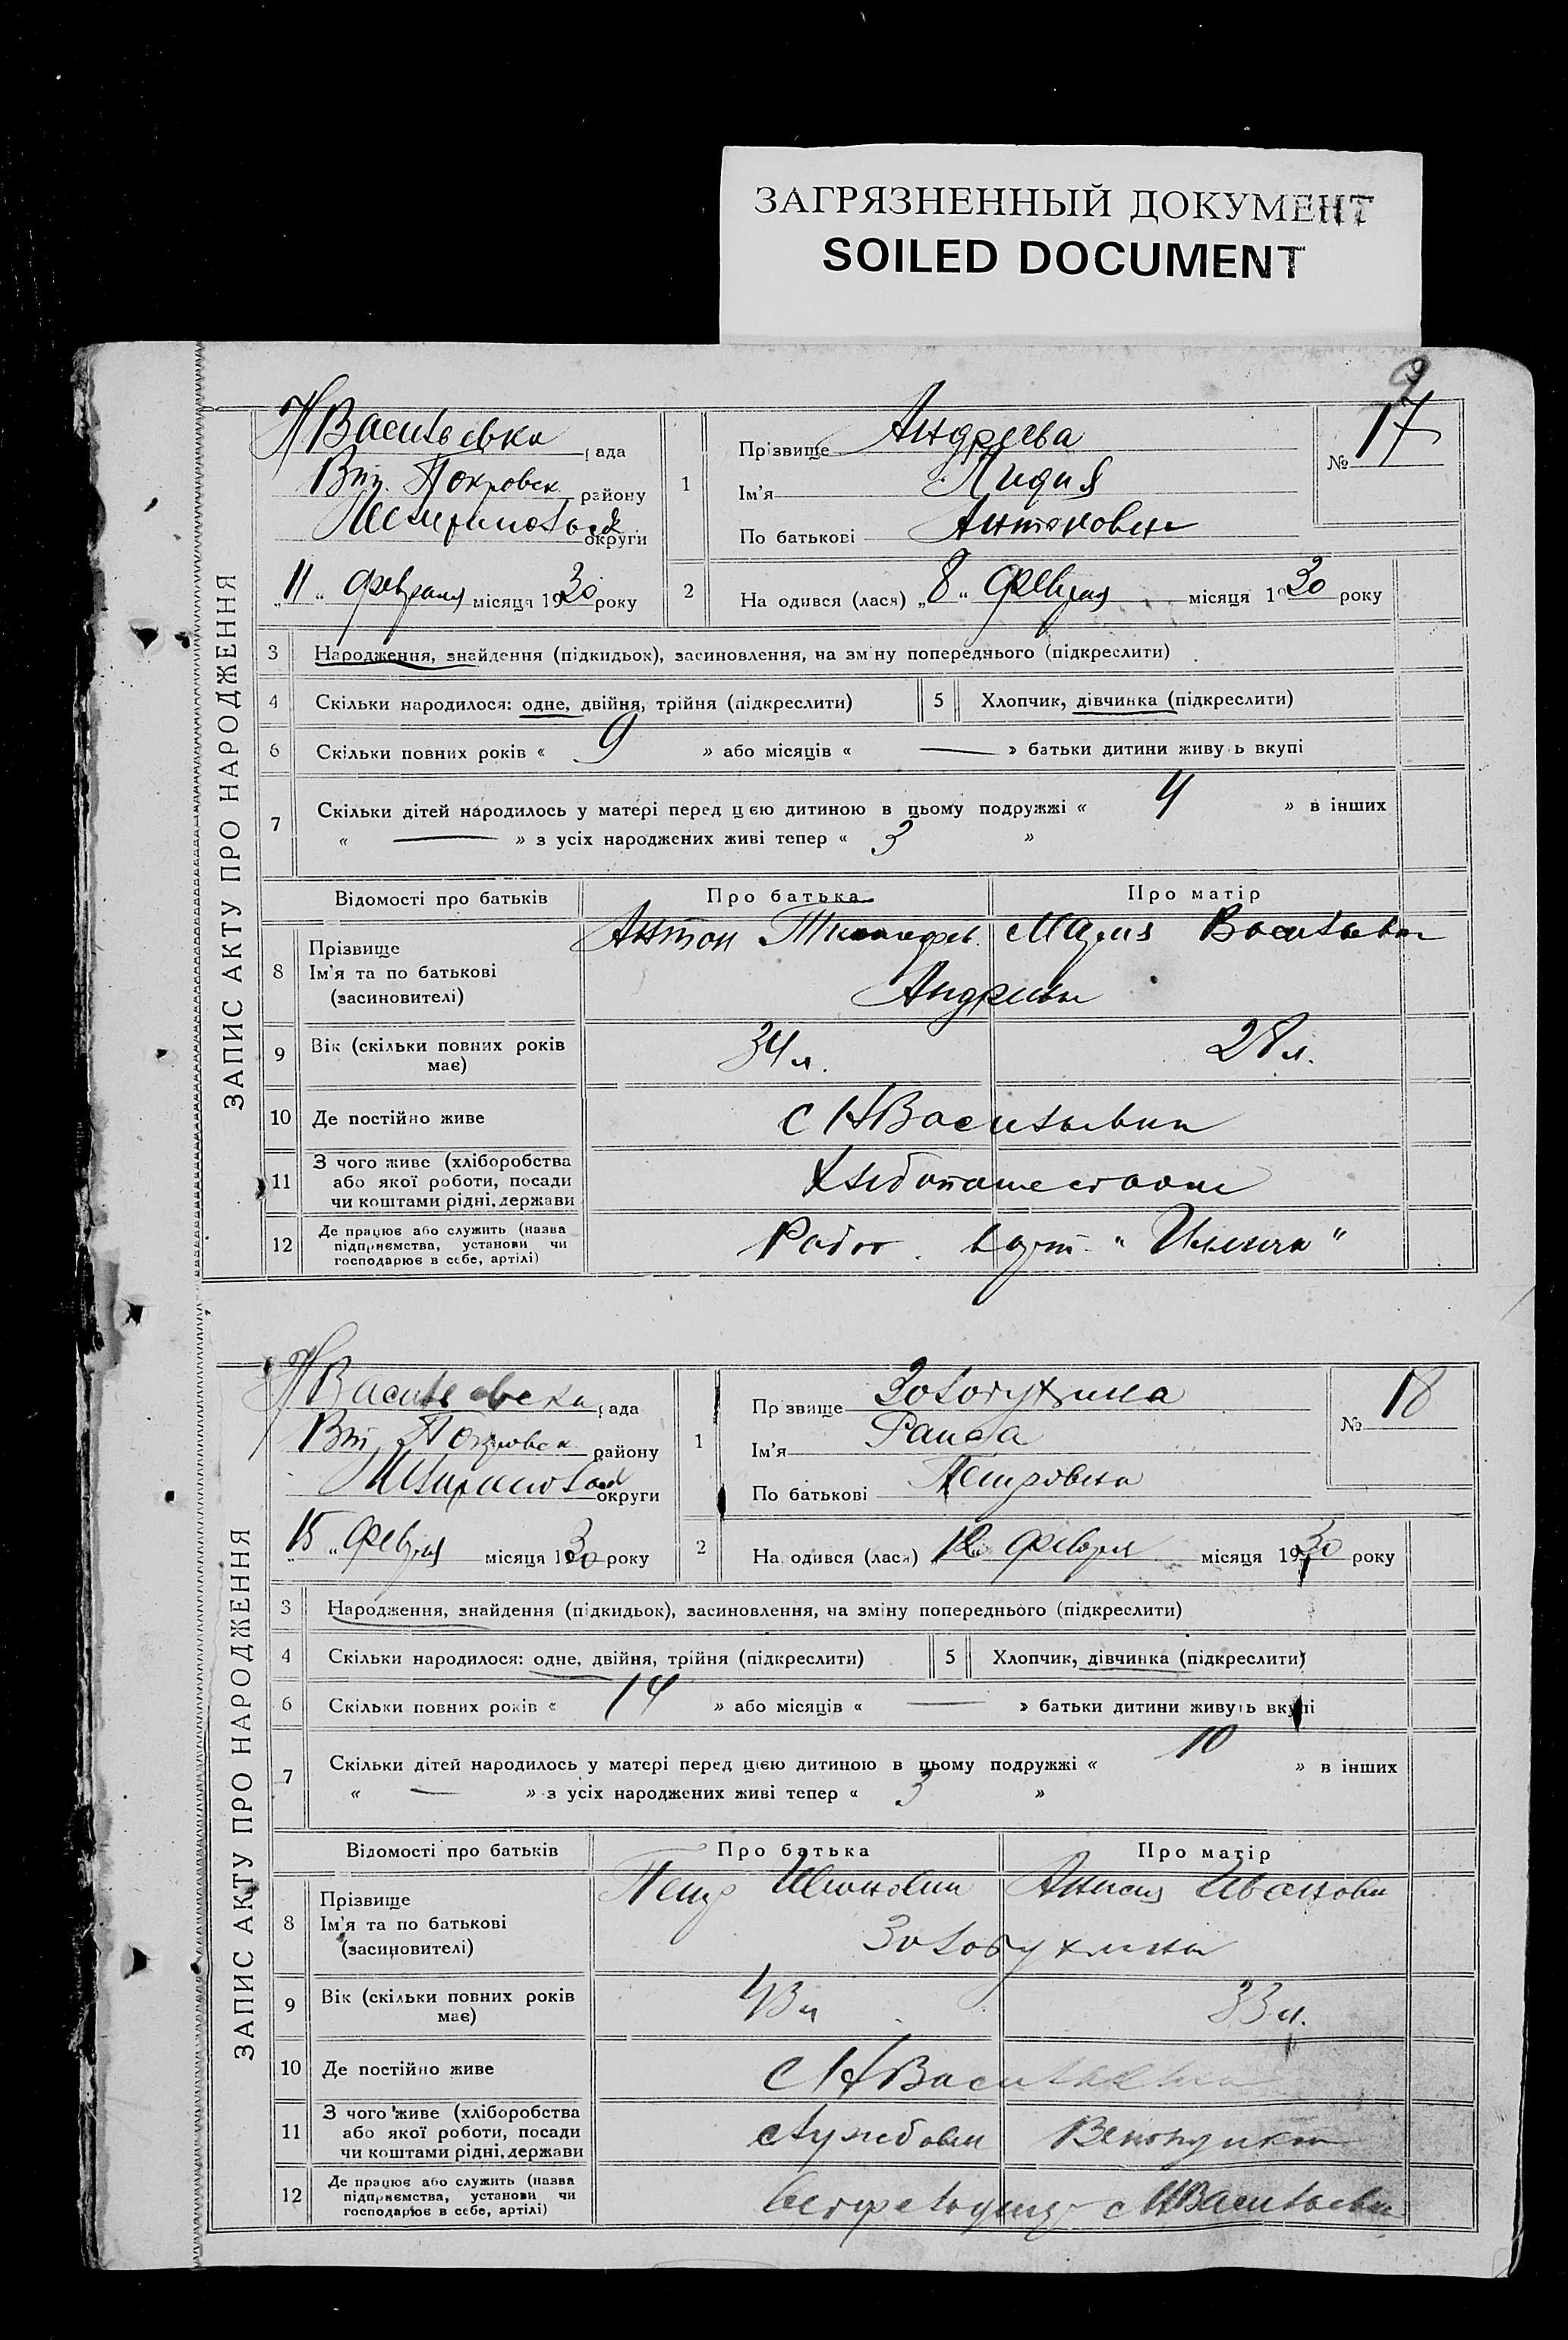 ЗАГРЯЗНЕННЫЙ ДОКУМЕНТ
SOILED DOCUMENT
9
ЗАПИС АКТУ ПРО НАРОДЖЕННЯ
НВасильевка рада
Вт. Покровск району
округи
„11“ февраля місяця 1930 року
1
Прізвище Андреева
Ім'я Лидия
По батькові Антоновна
№ 17
2 На одився (лася) „8“ февраля місяця 1930 року
3 Народження, знайдення (підкидьок), засиновлення, на зміну попереднього (підкреслити)
4 Скільки народилося: одне, двійня, трійня (підкреслити) 5 Хлопчик, дівчинка (підкреслити)
6 Скільки повних років « 9 » або місяців « — » батьки дитини живуть вкупі
7 Скільки дітей народилось у матері перед цією дитиною в цьому подружжі « 4 » в інших
« — » з усіх народжених живі тепер « 3 »
Відомості про батьків Про батька Про матір
8 Прізвище Ім'я та по батькові (засиновителі)
Антон Мария Васильевна
Андреевы
9 Вік (скільки повних років має) 34 л. 28 л.
10 Де постійно живе с НВасильевка
11 З чого живе (хліборобства або якої роботи, посади чи коштами рідні, держави
Хлебопашеством
12 Де працює або служить (назва підприємства, установи чи господарює в себе, артілі)
Работ. в арт. "Ильича"
ЗАПИС АКТУ ПРО НАРОДЖЕННЯ
НВасильевка рада
Вт. Покровск району
округи
„15“ февраля місяця 1930 року
1
Прізвище Золотухина
Ім'я Раиса
По батькові Петровна
№ 18
2 На одився (лася) „12“ февраля місяця 1930 року
3 Народження, знайдення (підкидьок), засиновлення, на зміну попереднього (підкреслити)
4 Скільки народилося: одне, двійня, трійня (підкреслити) 5 Хлопчик, дівчинка (підкреслити)
6 Скільки повних років « 14 » або місяців « — » батьки дитини живуть вкупі
7 Скільки дітей народилось у матері перед цією дитиною в цьому подружжі « 10 » в інших
« — » з усіх народжених живі тепер « 3 »
Відомості про батьків Про батька Про матір
8 Прізвище Ім'я та по батькові (засиновителі)
Петр Анисия Ивановна
Золотухины
9 Вік (скільки повних років має) 43 л 33 л.
10 Де постійно живе с НВасильевка
11 З чого живе (хліборобства або якої роботи, посади чи коштами рідні, держави
службой Ветпункт
12 Де працює або служить (назва підприємства, установи чи господарює в себе, артілі)
с НВасильевки